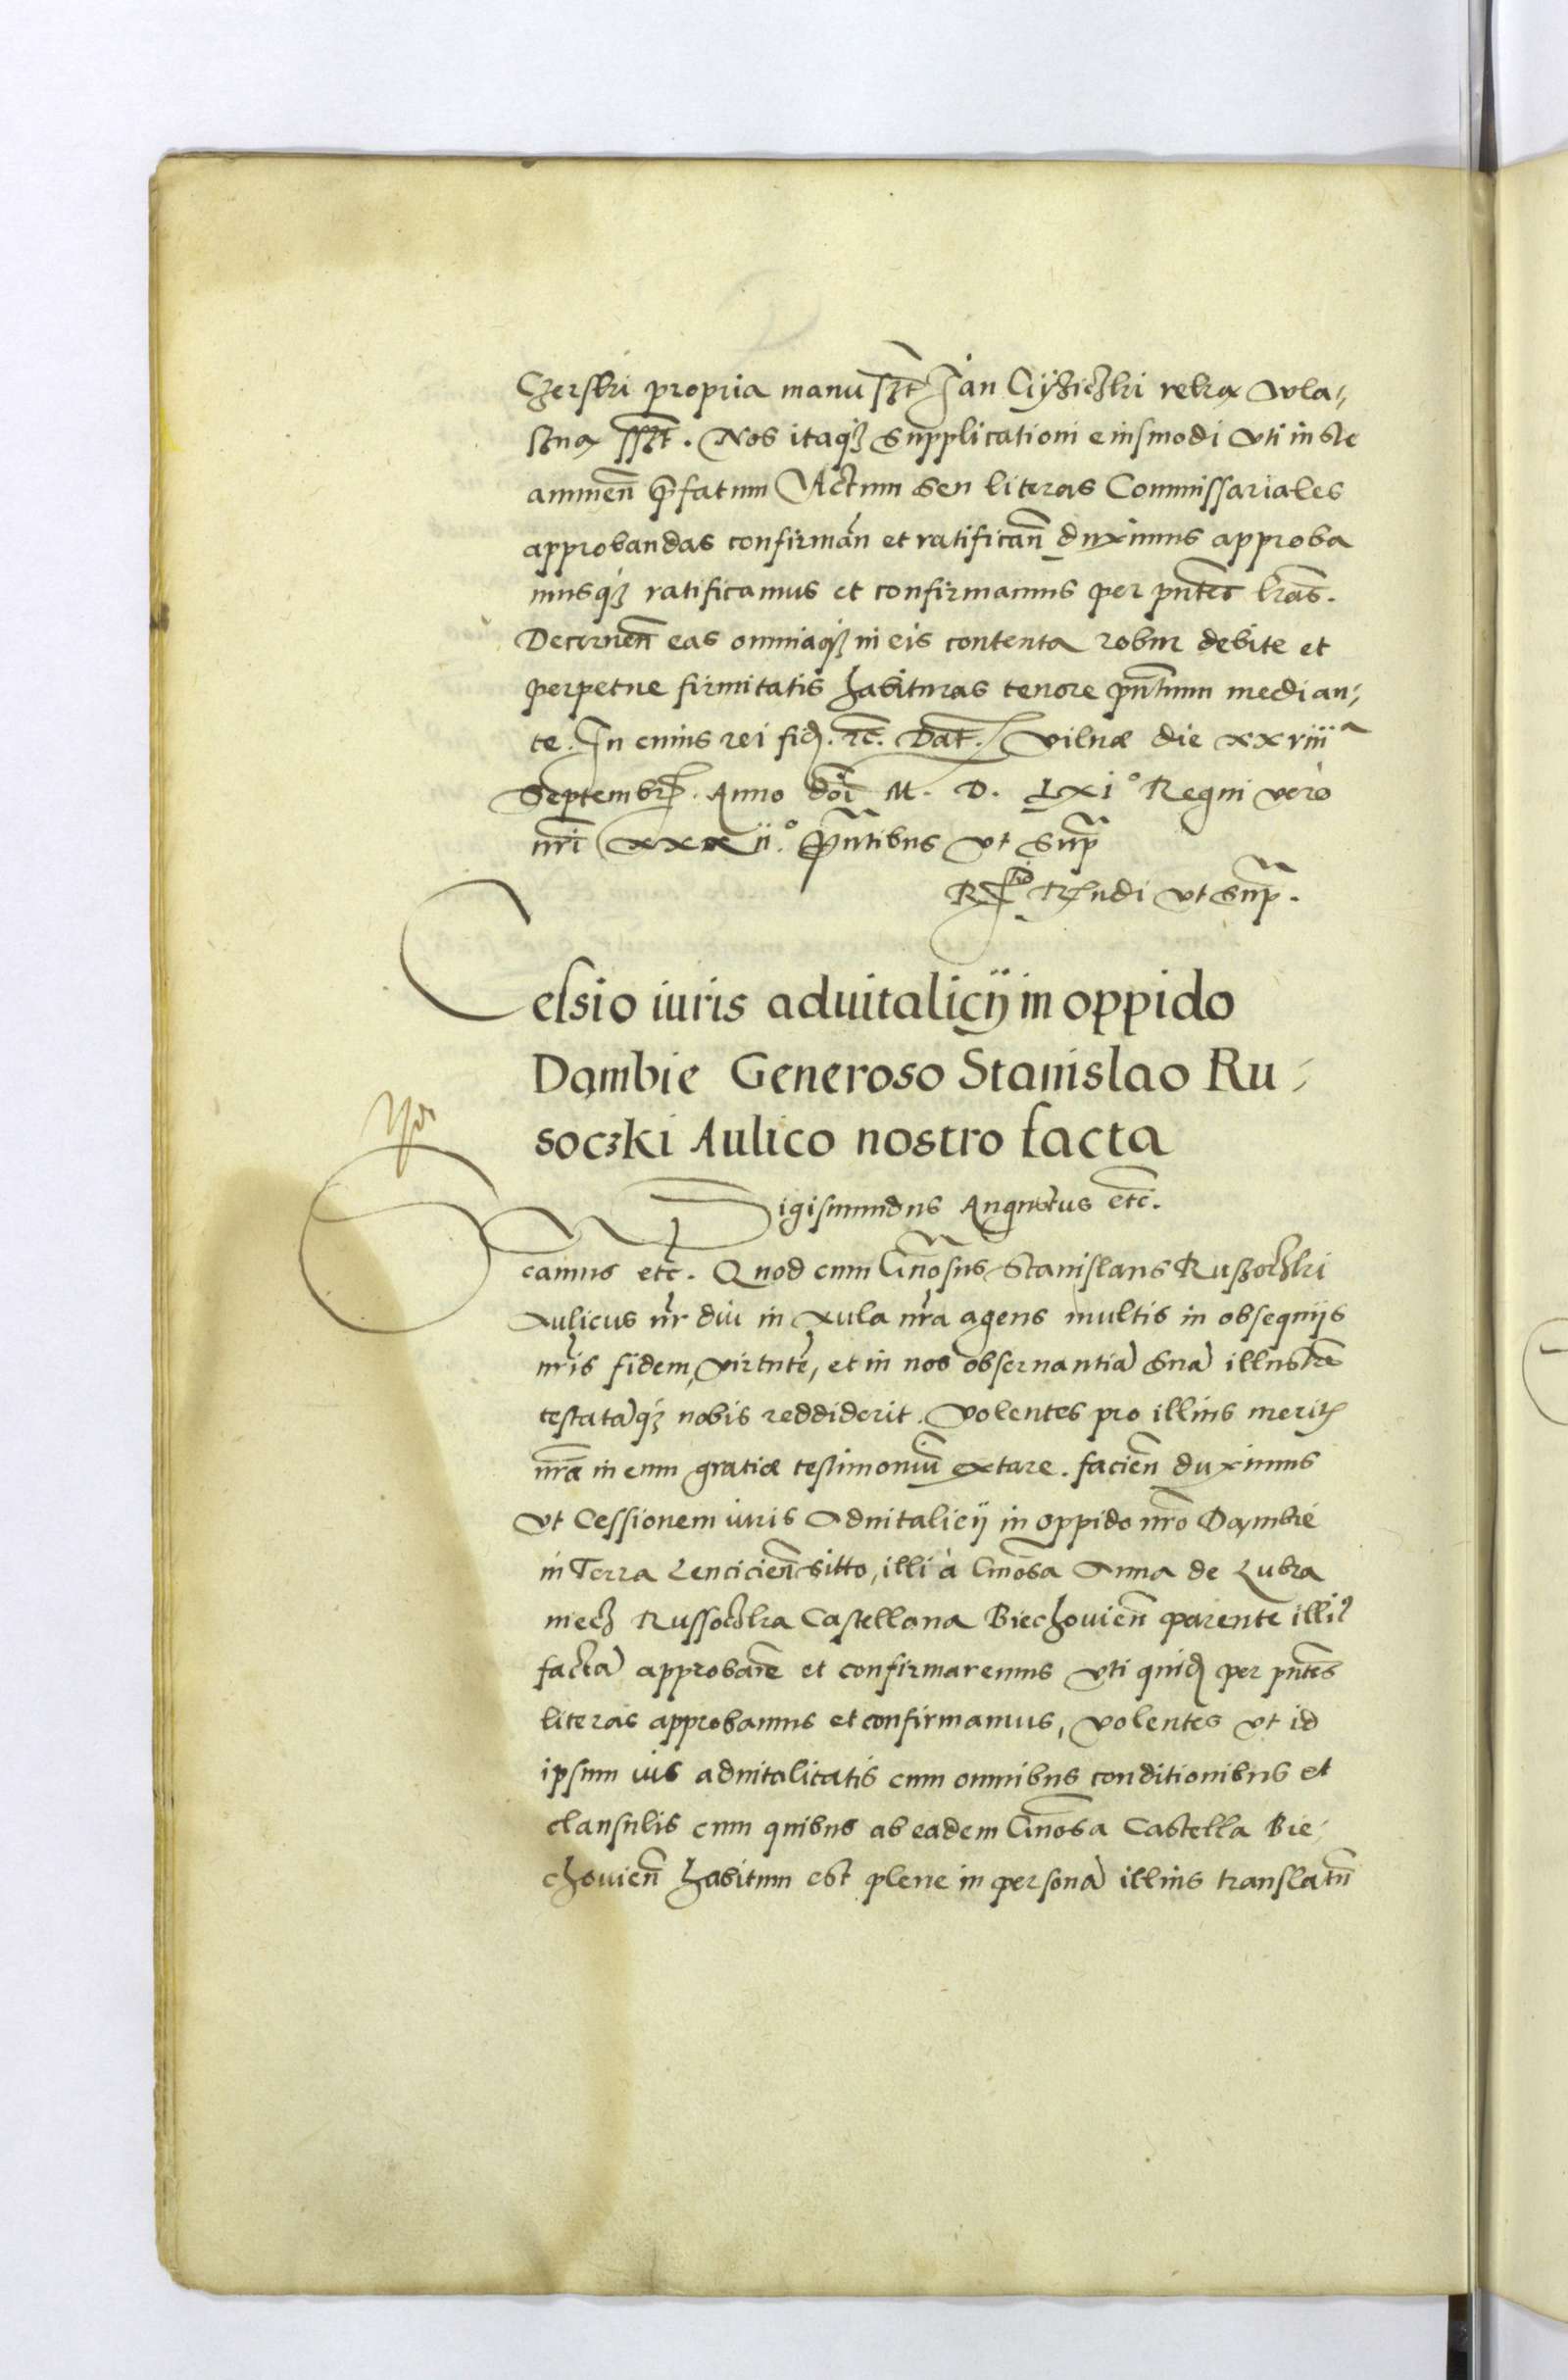 Czerski propria manu sszt Jan Cziżiczki reką wla¬
szną sszt. Nos itaqȝ supplicationi eiusmodi uti iuste
annuen̄ p̄fatum Actum seu literas Commissariales
approbandas confirman̄ et ratifican̄ duximus approba
musqȝ ratificamus et confirmamus per pn̄tes lr̄as.
Decernen̄ eas omniaqȝ in eis contenta robur debite et
perpetue firmitatis habituras tenore pn̄tium median¬
te. In cuius rei fid. etc. Dat. Vilnæ die xxviii a
Septembr. Anno dn̄i M. D. Lxi° Regni vero
nr̄i xxxii.° Pn̄tibus ut sup̄
Rndi ut sup̄.
Celsio iuris aduitalicij in oppido
Dąmbie Generoso Stanislao Ru¬
soczki Aulico nostro facta
Sigismundus Augustus etc.
camus etc. Quod cum Gn̄osus Stanislaus Rußoczki
Aulicus nr̄ diu in Aula nr̄a agens multis in obsequijs
nr̄is fidem, virtutē, et in nos obseruantiā suā illustrē
testatāqȝ nobis reddiderit. Volentes pro illius merit
nr̄æ in eum gratiæ testimoniū extare. facien̄ duximus
ut Cessionem iuris Aduitalicij in oppido nr̄o Dąmbie
in Terra Lencicien̄ sitto, illi à Gn̄osa Anna de Lubra
niecz Russoczka Castellana Biechouien̄ parente illi
factā approbarē et confirmaremus uti quid per pn̄tes
literas approbamus et confirmamus, volentes ut id
ipsum ius aduitalitatis cum omnibus conditionibus et
clausulis cum quibus ab eadem Gn̄osa Castella Bie¬
chouien̄ habitum est plene in personā illius translatū